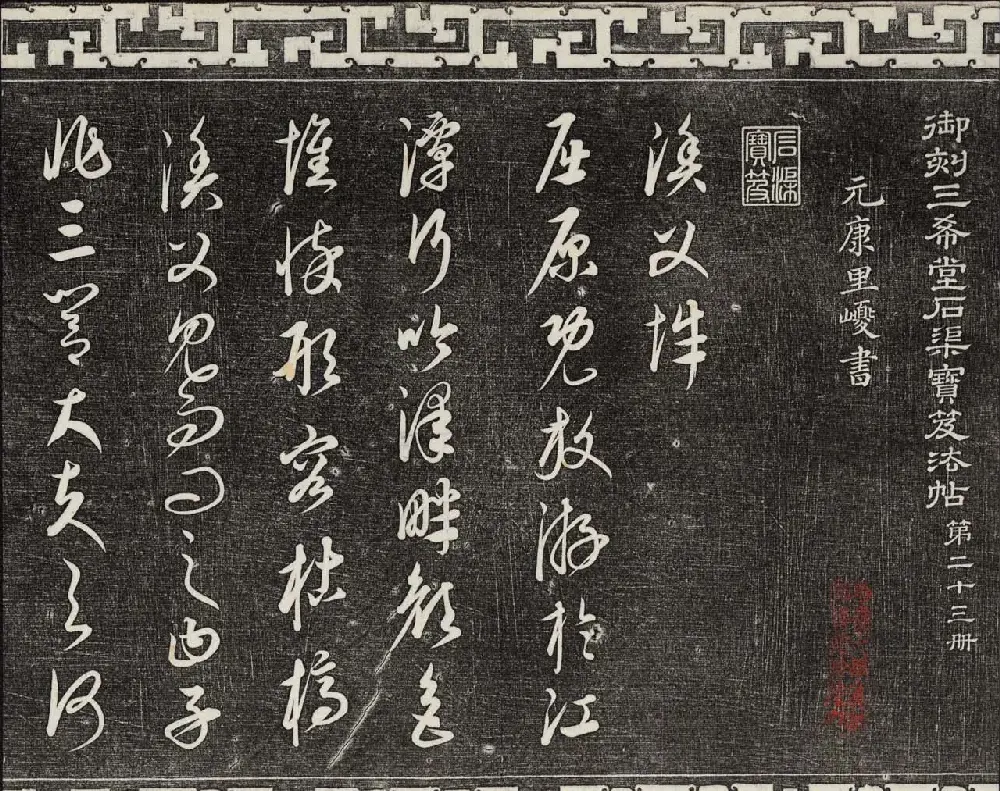 御刻三希堂石渠寶笈法帖第二十三册
元康里巎書
石渠寶笈
漁父辭
屈原既放游於江
潭行吟澤畔顏色
憔悴形容枯槁
漁父見而問之曰子
非三閭大夫与何